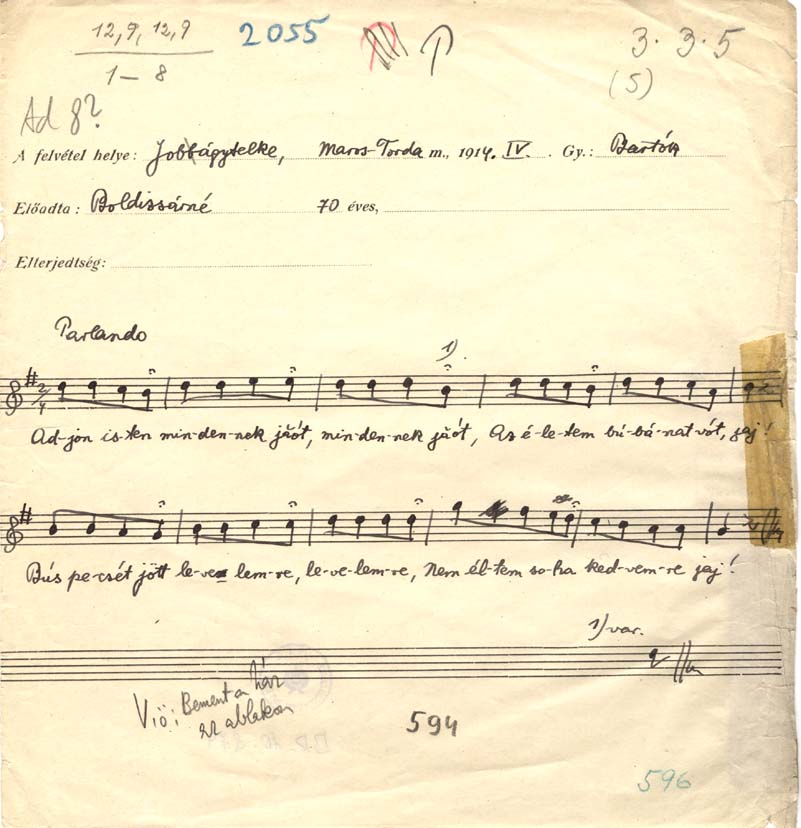 12, 9, 12, 9 2055 P 3. 3. 5
1 – 8 (5)
Ad 8?
A felvétel helye: Jobbágytelke, Maros-Torda m., 1914. IV. Gy.: Bartók
Előadta: Boldissárné 70 éves,
Elterjedtség:
Parlando
1).
2/4
Ad-jon is-ten min-den-nek jăót, min-den-nek jăót, Az é-le-tem bú-bá-nat-vót, jaj!
Bús pe-csét jött le-ve-lem-re, le-ve-lem-re, Nem él-tem so-ha ked-vem-re jaj!
1) var.
Viö: Bement a ház
az ablakon
594
596